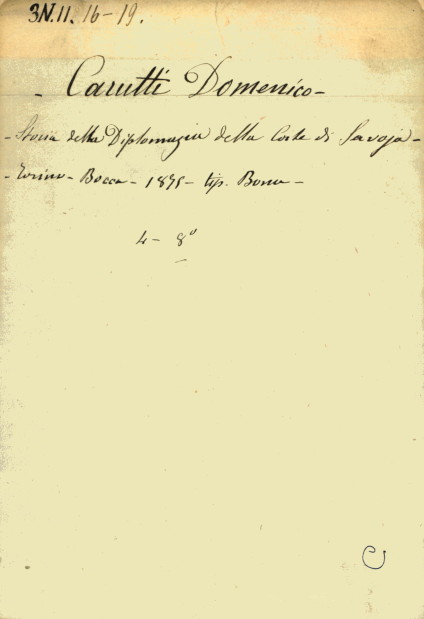 3N.11. 16-19.
- Carutti Domenico -
- Storia della Diplomazia della Corte di Savoja -
- Torino - Bocca - 1875 - tip. Bona -
4 - 8°
C